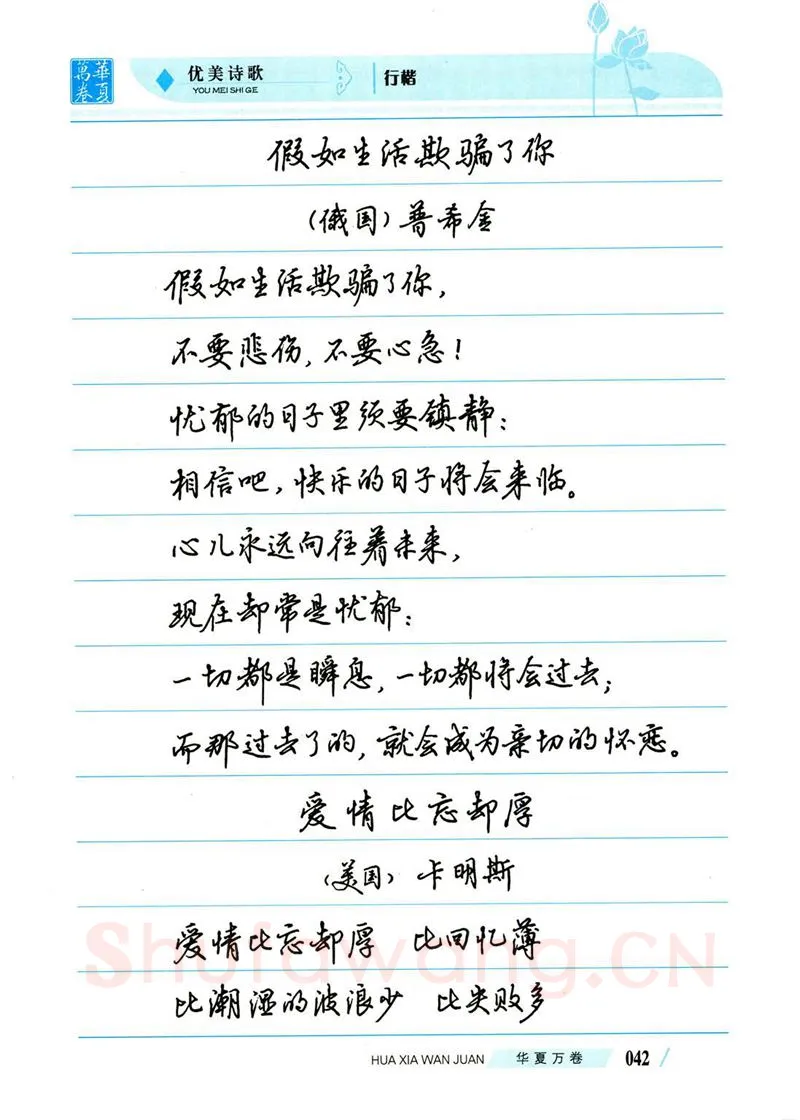 華夏萬卷
优美诗歌
YOU MEI SHI GE
行楷
假如生活欺骗了你
（俄国）普希金
假如生活欺骗了你，
不要悲伤，不要心急！
忧郁的日子里须要镇静：
相信吧，快乐的日子将会来临。
心儿永远向往着未来，
现在却常是忧郁：
一切都是瞬息，一切都将会过去；
而那过去了的，就会成为亲切的怀恋。
爱情比忘却厚
（美国） 卡明斯
爱情比忘却厚 比回忆薄
比潮湿的波浪少 比失败多
Shufawang.CN
HUA XIA WAN JUAN 华夏万卷 042